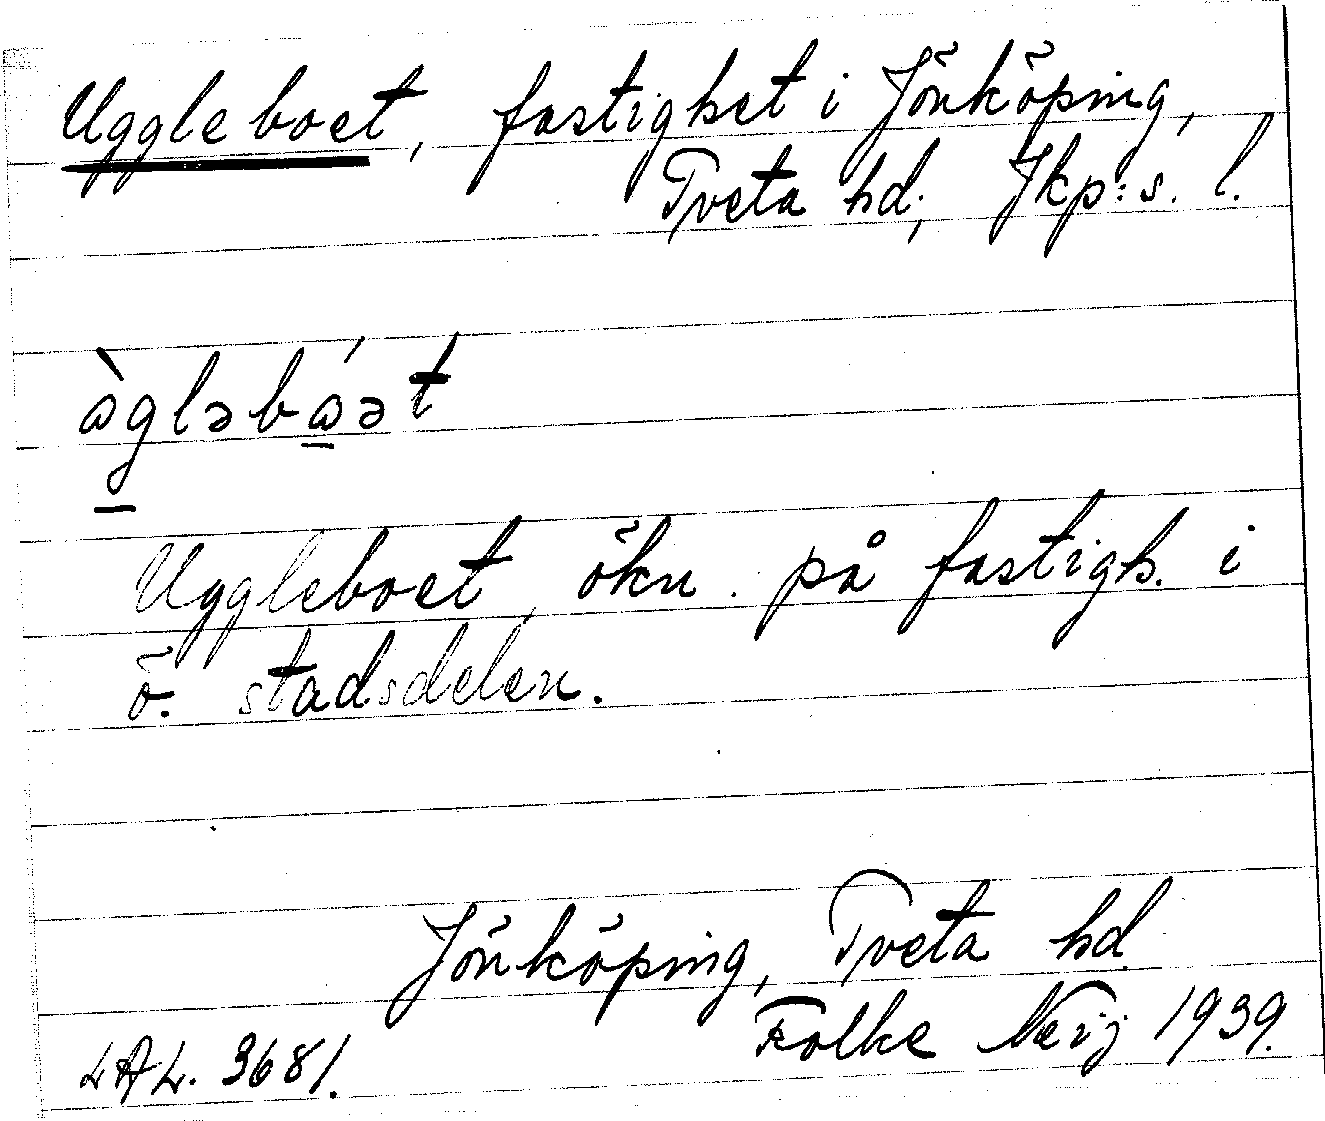 Uggleboet, fastighet i Jönköping,
Tveta hd; Jkp:s. l.
Uggleboet, ökn. på fastigh. i
ö. stadsdelen.
Jönköping, Tveta hd
Folke 1939.
LAL. 3681.